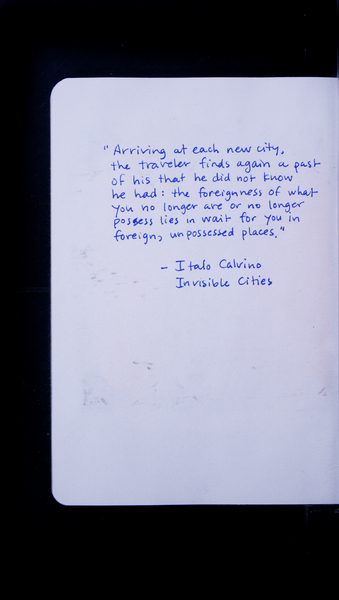 "Arriving at each new city,
the traveler finds again a past
of his that he did not know
he had: the foreignness of what
you no longer are or no longer
possess lies in wait for you in
foreign, unpossessed places."
- Italo Calvino
Invisible Cities